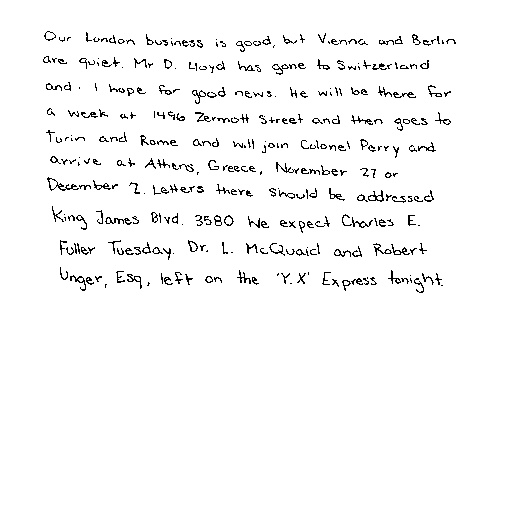 Our London business is good, but Vienna and Berlin
are quiet. Mr D. Lloyd has gone to Switzerland
and. I hope for good news. He will be there for
a week at 1496 Zermott Street and then goes to
Turin and Rome and will join Colonel Perry and
arrive at Athens, Greece, November 27 or
December 2. Letters there should be addressed
King James Blvd. 3580 We expect Charles E.
Fuller Tuesday. Dr. L. McQuaid and Robert
Unger, Esq, left on the 'Y.X' Express tonight.